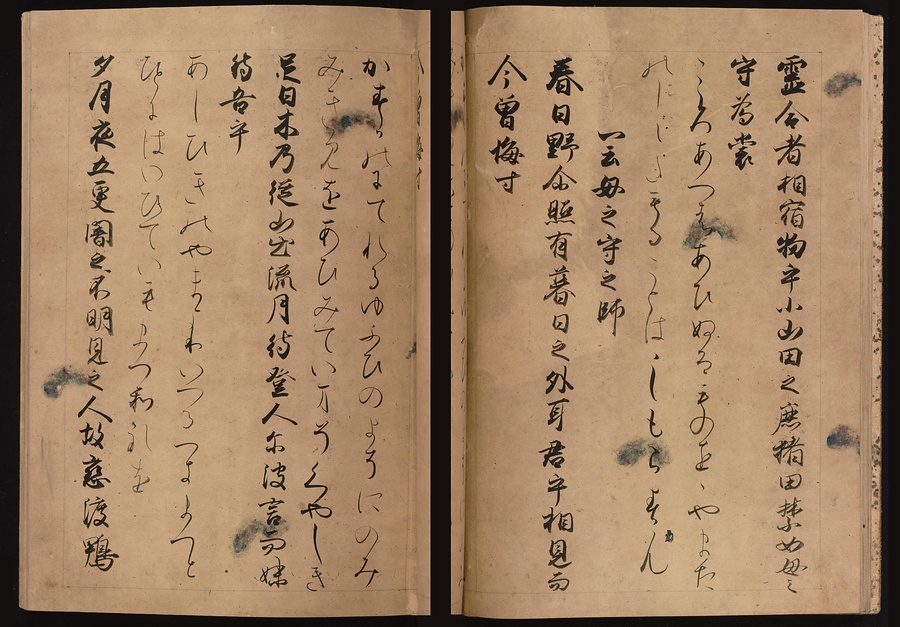 霊合者相宿物乎小山田之鹿猪田禁如母之
守為裳
こゝろあへはあひぬるものをゝやまた
のしゝたもることはゝしもらすも
一云母之守之師
春日野尓照有暮日之外耳君乎相見而
今曽悔寸
かすかのにてれるゆふひのよそにのみ
きみをあひみていまそくやしき
足日木乃従山出流月待登人尓波言而妹
待吾乎
あしひきのやまよりいつるつきまつと
ひとにはいひていもまつわれを
夕月夜五更闇之不明見之人故恋渡鴨